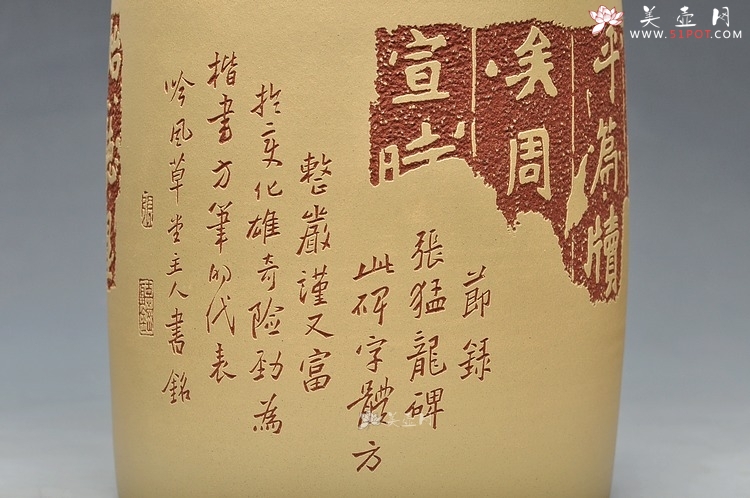 美壶网
WWW.51POT.COM
平篇牘
周
宣时
節録
張猛龍碑
此碑字體方
整嚴謹又富
於变化雄奇險勁為
楷書方筆的代表
吟風草堂主人書銘
美壶网